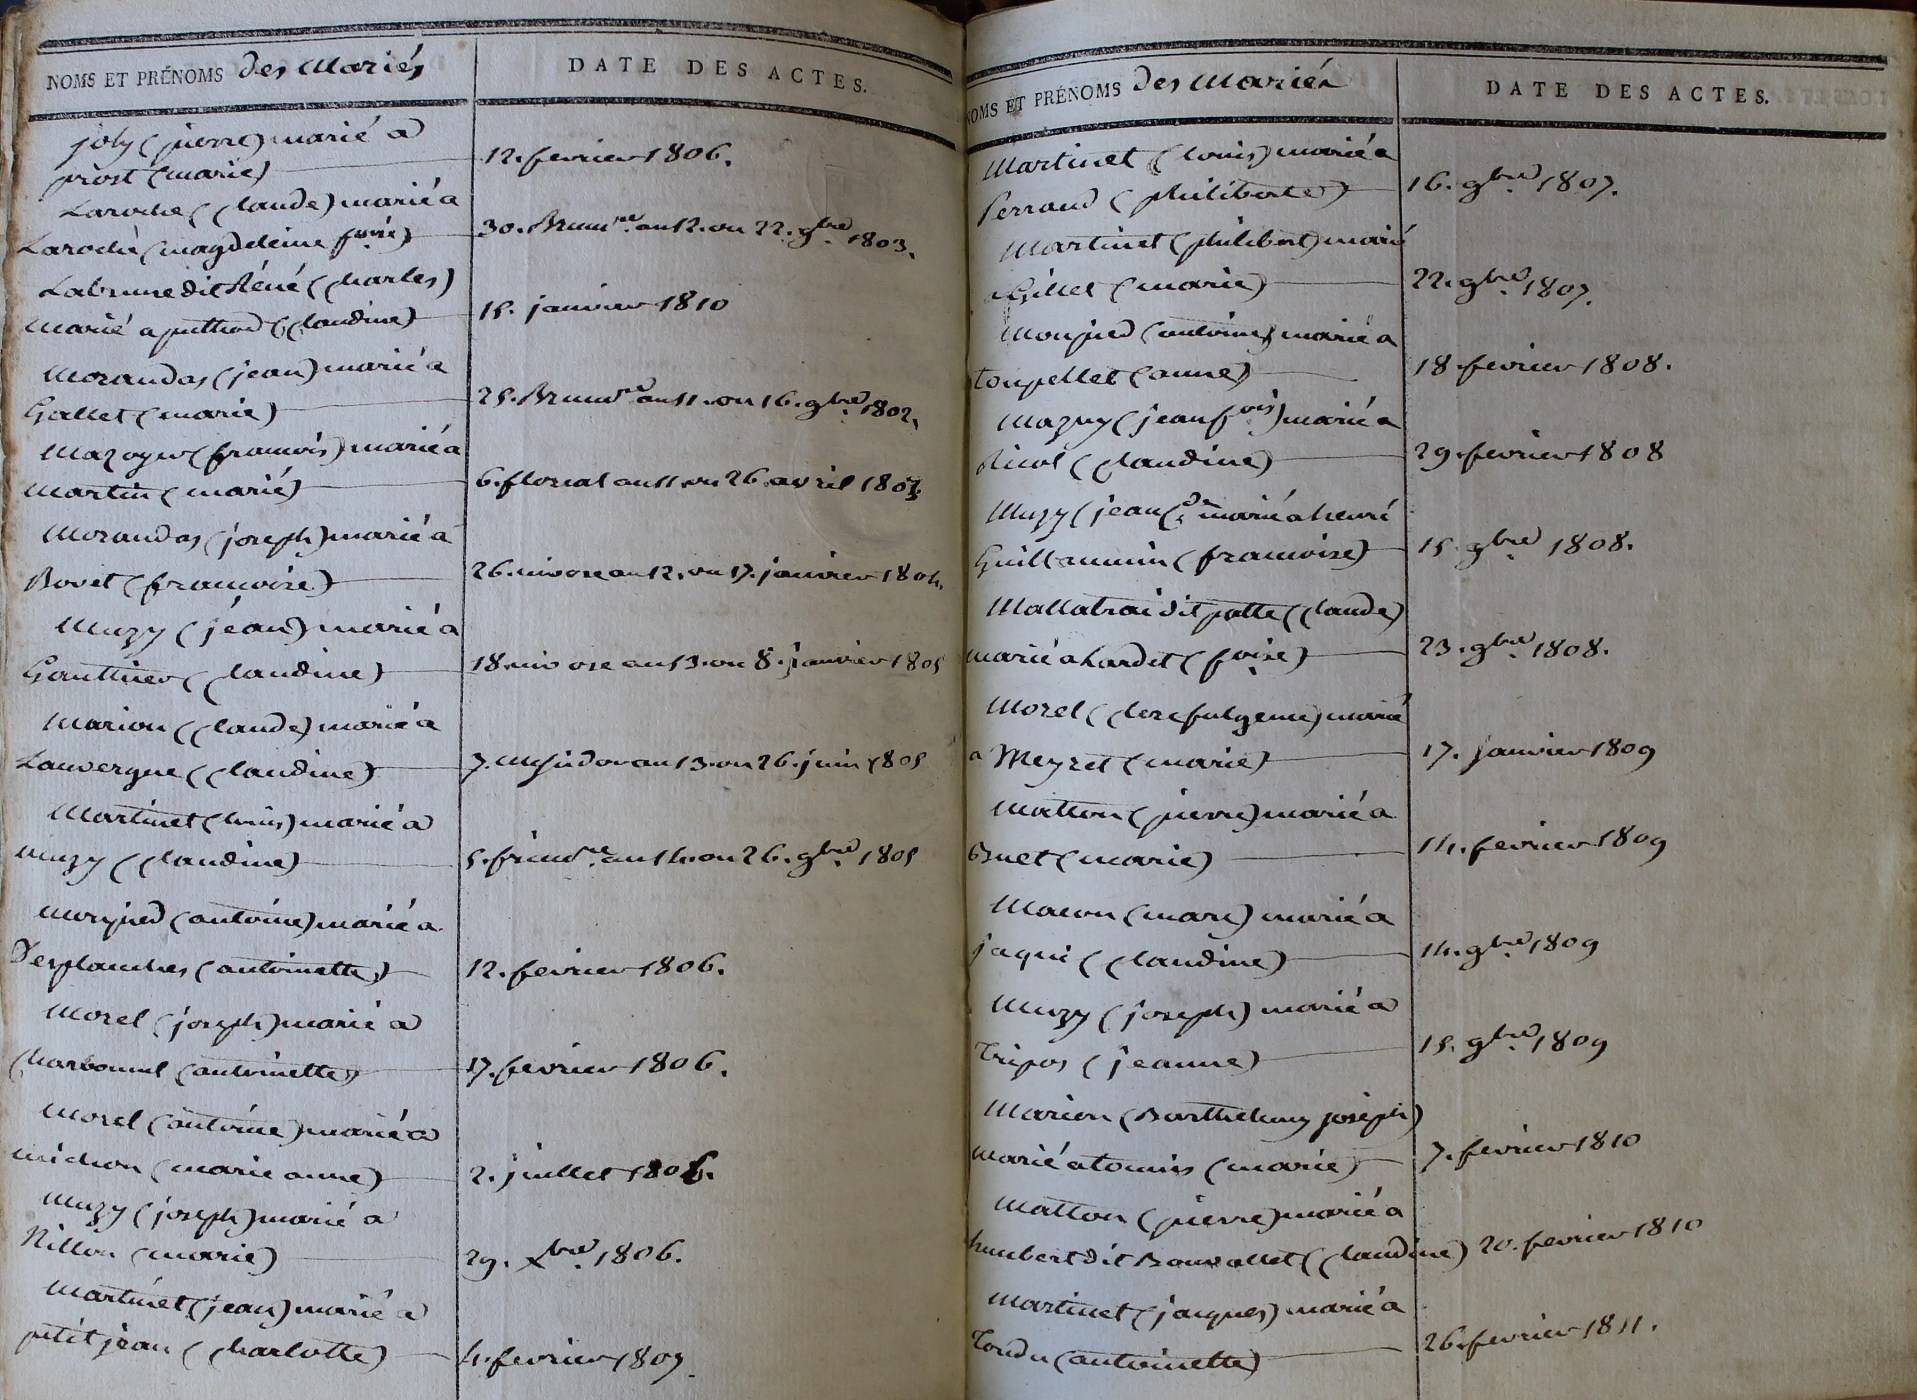 NOMS ET PRÉNOMS des Mariés
DATE DES ACTES.
joly (pierre) marié a
prost (marie)
12. fevrier 1806.
Laroche (Claude) marié a
Laroche (magdeleine fçoise)
30. Brumre an 12. ou 22. 9bre 1803.
Labrune dit Réné (Charles)
marié a puthod (Claudine)
15. janvier 1810
Morandas (jean) marié a
Gallet (marie)
25. Brumre an 11. ou 16. 9bre 1802.
Mazoyer (francois) marié a
Martin (marie)
6. floreal an 11. ou 26 avril 1803.
Morandas (joseph) marié a
Bovet (francoise)
26. nivose an 12. ou 17. janvier 1804.
Muzy (jean) marié a
Gauthier (Claudine)
18. nivose an 13. ou 8. janvier 1805
Marion (Claude) marié a
Lauvergne (Claudine)
7. messidor an 13. ou 26. juin 1805
Martinet (louis) marié a
muzy (Claudine)
5. frimre an 14. ou 26. 9bre 1805
(antoine) marié a
Desplanches (antoinette)
12. fevrier 1806.
Morel (joseph) marié a
(antoinette)
17. fevrier 1806.
Morel (antoine) marié a
michon (marie anne)
2. juillet 1806.
Muzy (joseph) marié a
Nillon (marie)
29. Xbre 1806.
Martinet (jean) marié a
petitjean (Charlotte)
4. fevrier 1807.
NOMS ET PRÉNOMS des Mariés
DATE DES ACTES.
Martinet (louis) marié a
Perraud (philiberte)
16. 9bre 1807.
Martinet (philibert) marié
a Gillet (marie)
22. 9bre 1807.
Monpied (antoine) marié a
Toupellet (anne)
18 fevrier 1808.
Mazuy (jean fois) marié a
Nicol (Claudine)
29. fevrier 1808
Muzy (jean Cde marié a henri
Guillaumin (francoise)
15. 9bre 1808.
Mallatrai dit patte (Claude)
marié a hardet (foise)
23. 9bre 1808.
Morel (Clere fulgence) marié
a Meyret (marie)
17. janvier 1809
Matton (pierre) marié a
Buet (marie)
14. fevrier 1809
Macon (marc) marié a
jaqui (Claudine)
14. 9bre 1809
Muzy (joseph) marié a
Tripos (jeanne)
15. 9bre 1809
Marion (Barthelemy joseph)
marié a (marie)
7. fevrier 1810
Matton (pierre) marié a
humbert dit Bouvallet (Claudine)
20. fevrier 1810
Martinet (jacques) marié a
Tondu (antoinette)
26. fevrier 1811.